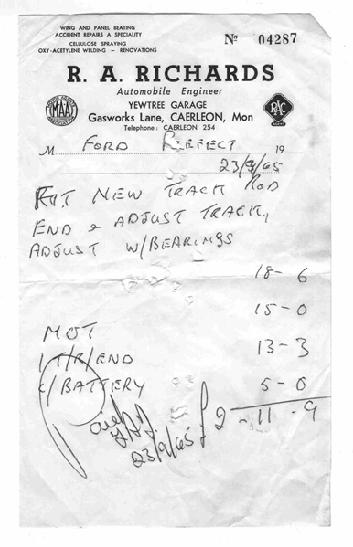 WING AND PANEL BEATING
ACCIDENT REPAIRS A SPECIALITY
CELLULOSE SPRAYING
OXY-ACETYLENE WILDING - RENOVATIONS
No 04287
R. A. RICHARDS
Automobile Engineer
YEWTREE GARAGE
Gasworks Lane, CAERLEON, Mon
Telephone: CAERLEON 254
MAA
RAC
M FORD PREFECT 19
23/9/65
FIT NEW TRACK ROD
END & ADJUST TRACK,
ADJUST W/BEARINGS
18-6
15-0
MOT
13-3
1 T/R/END
C/BATTERY 5-0
£2-11-9
23/9/65